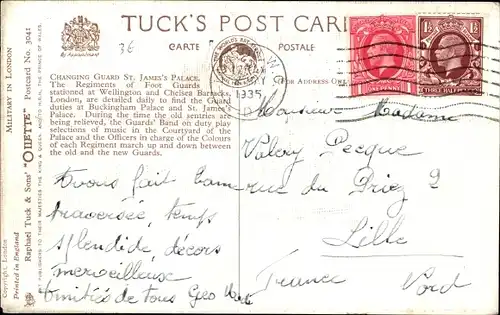 TUCK'S POST CARD
CARTE POSTALE
36
By Appointment
CHANGING GUARD ST. JAMES'S PALACE.
The Regiments of Foot Guards
stationed at Wellington and Chelsea Barracks,
London, are detailed daily to find the Guard
duties at Buckingham Palace and St. James's
Palace. During the time the old sentries are
being relieved, the Guards' Band on duty play
selections of music in the Courtyard of the
Palace and the Officers in charge of the Colours
of each Regiment march up and down between
the old and the new Guards.
(FOR ADDRESS ON
1935
ONE PENNY
THREE HALF
MILITARY IN LONDON
"OILETTE" Postcard No. 3041
Raphael Tuck & Sons'
ART PUBLISHERS TO THEIR MAJESTIES THE KING & QUEEN
Copyright, London
Printed in England
Avons fait
traversée, temps
splendide, décors
merveilleux
Amitiés de tous Geo
Monsieur Madame
Valery Pecque
rue du Priez 2
Lille
France Nord